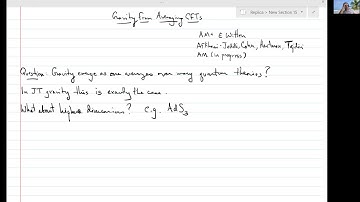 Replica – New Section 15
Gravity from Averaging CFTs
AM + E Witten
Afkhami-Jeddi, Cohn, Hartman, Tajdini
AM (in progress)
Question: Gravity emerge as one averages over many quantum theories?
In JT gravity this is exactly the case.
What about higher dimensions? e.g. AdS3